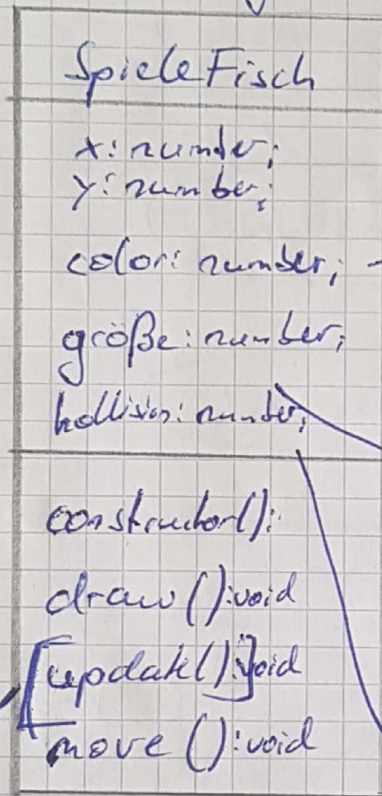 SpieleFisch
x: number;
y: number;
color: number;
größe: number;
kollision: number;
constructor():
draw():void
[update():]void
move():void